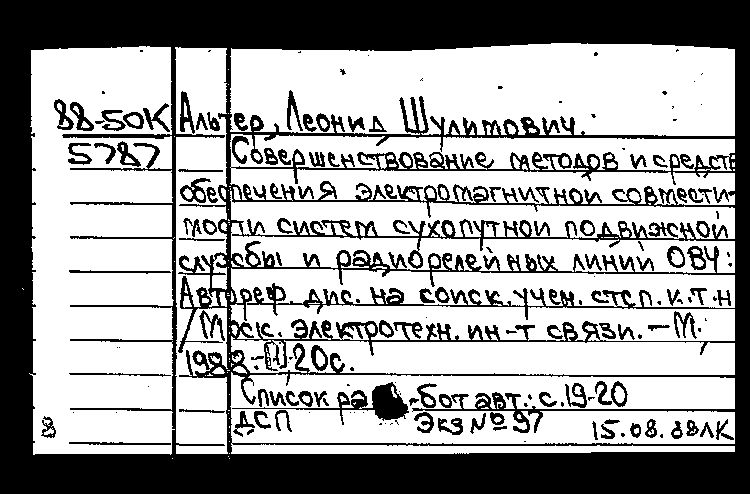 88-50К Альтер, Леонид Шулимович.
5787 Совершенствование методов и средств
обеспечения электромагнитной совмести-
мости систем сухопутной подвижной
службы и радиорелейных линий ОВЧ:
Автореф. дис. на соиск. учен. степ. к.т.н
/Моск. электротехн. ин-т связи. – М.,
1988.- 20с.
Список ра -бот авт.: с.19-20
ДСП Экз № 97 15.08.88ЛК
8